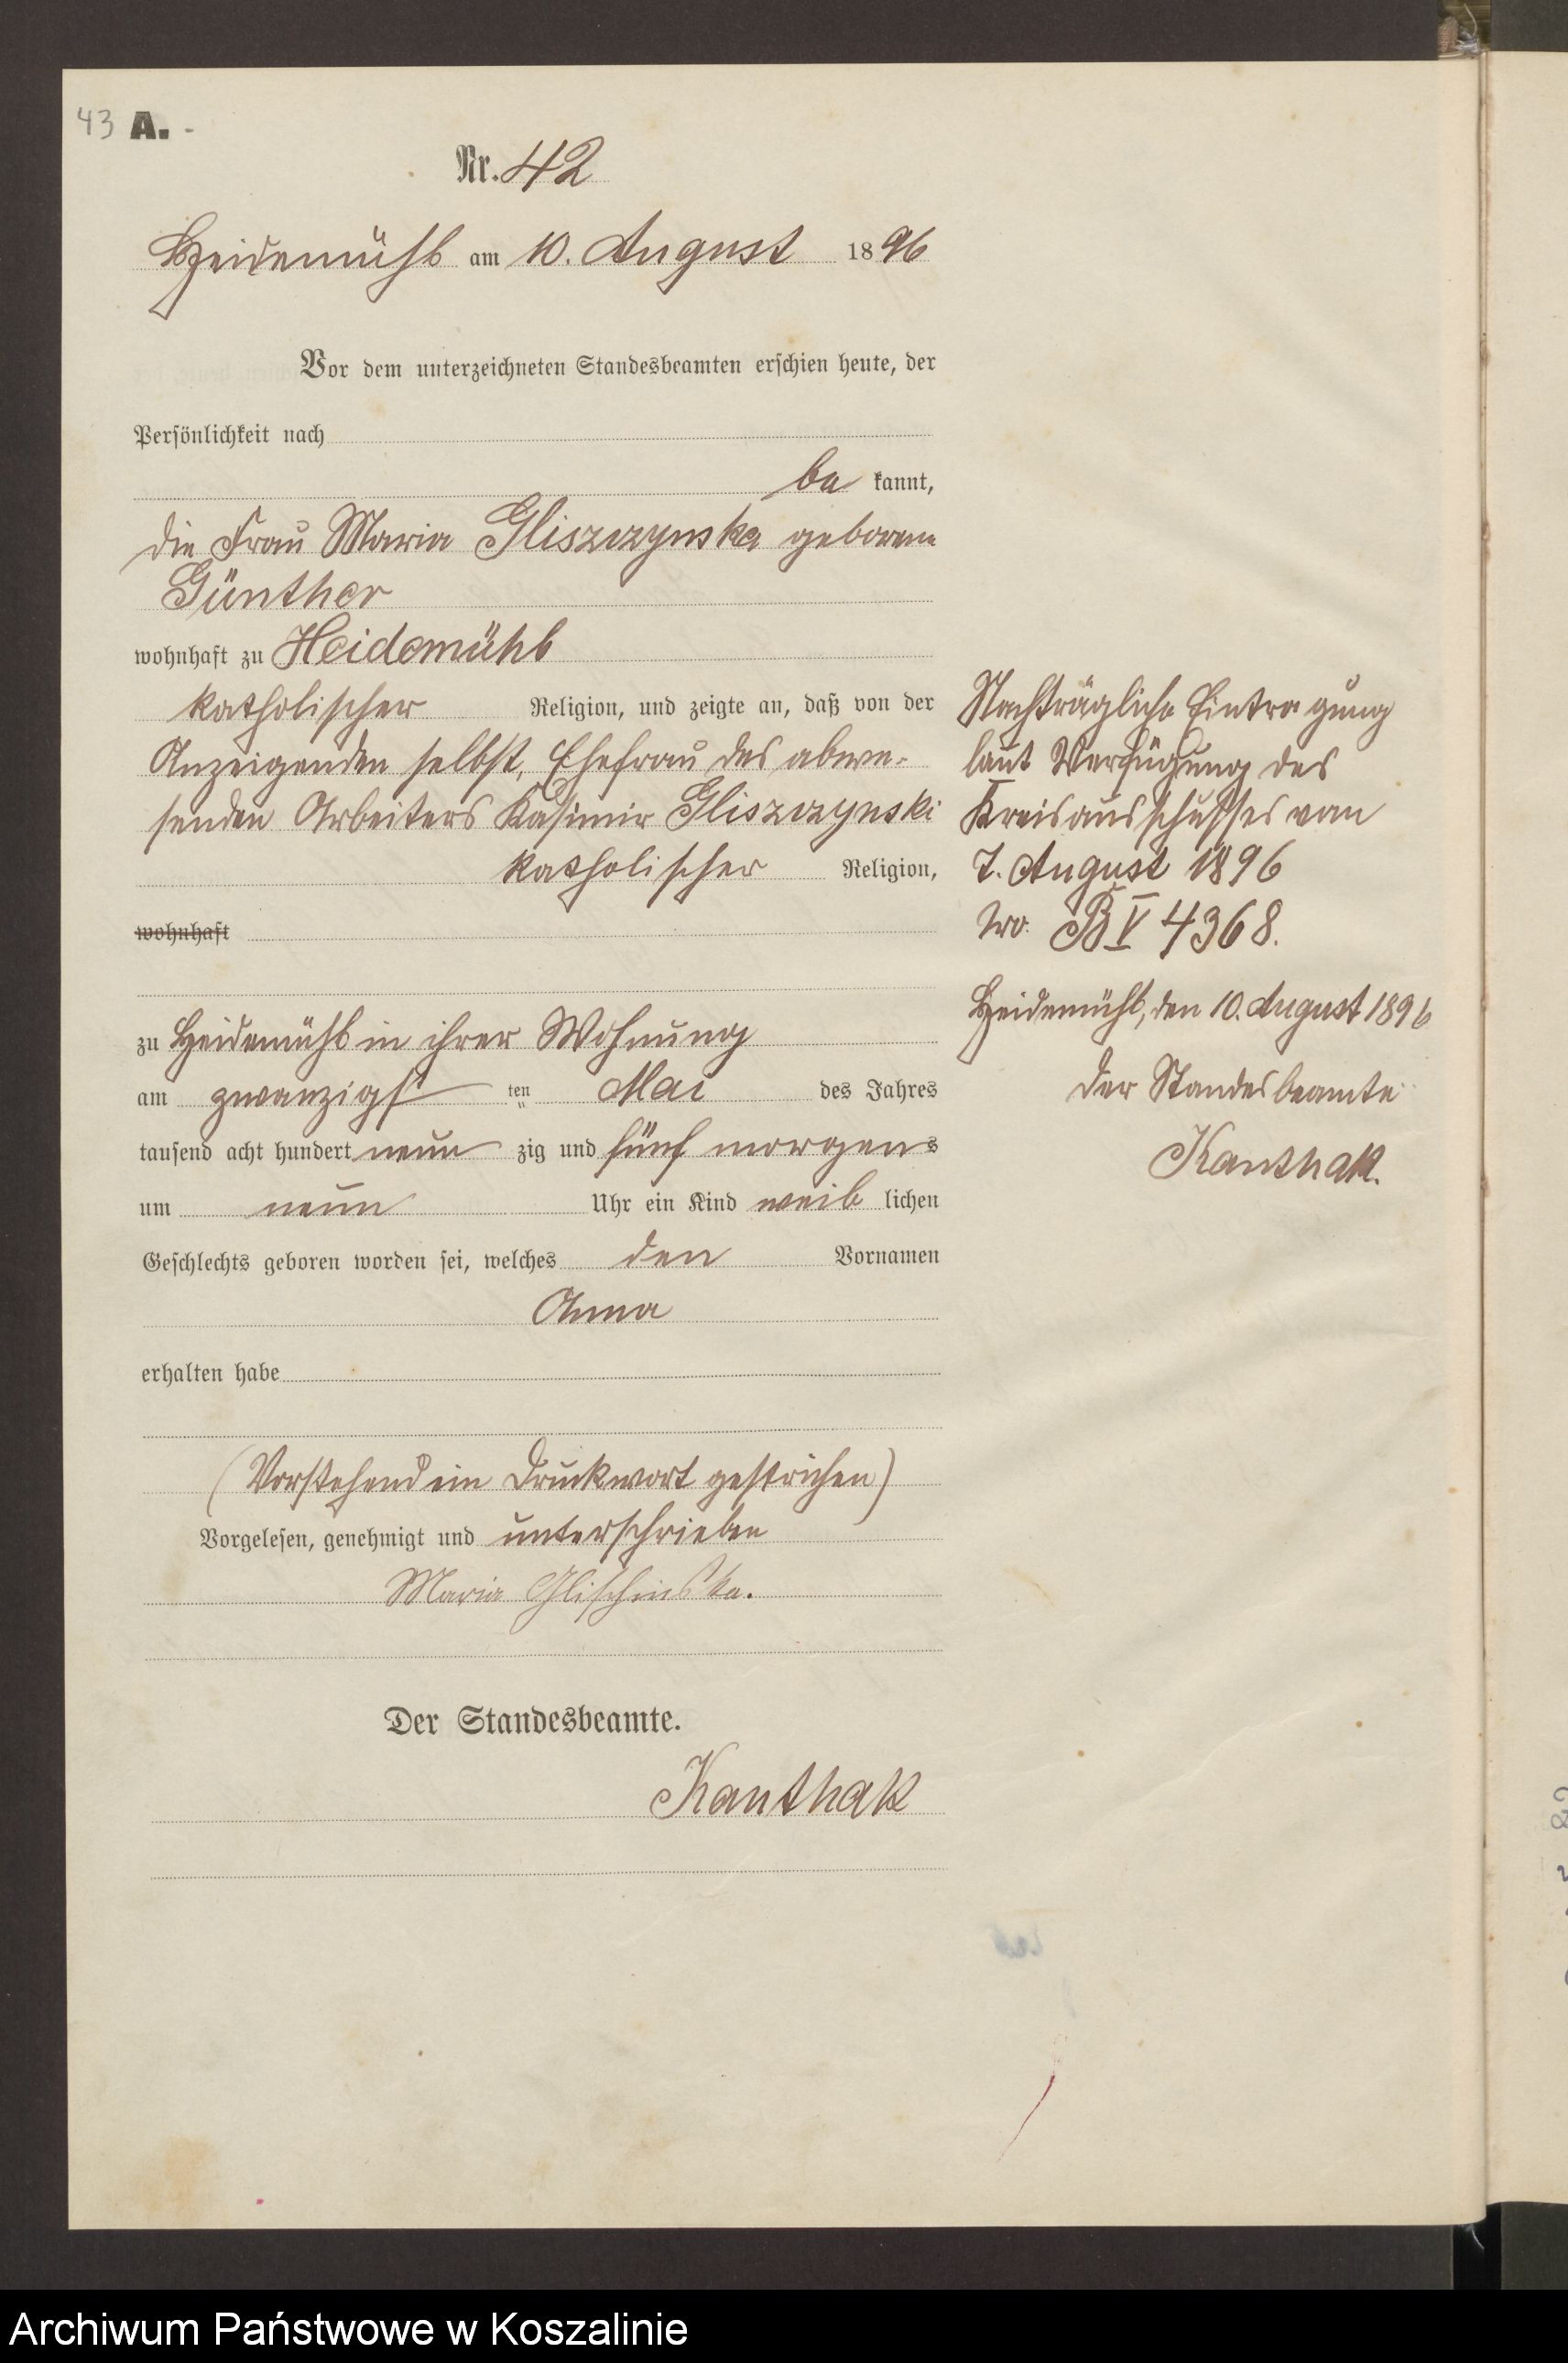 43 A. -
Nr. 42
Heidemühl am 10. August 1896
Vor dem unterzeichneten Standesbeamten erschien heute, der
Persönlichkeit nach
be kannt,
die Frau Maria Gliszczynska geborene
Günther
wohnhaft zu Heidemühl
katholischer Religion, und zeigte an, daß von der
Anzeigenden selbst, Ehefrau des abwe-
senden Arbeiters Kasimir Gliszczynski
katholischer Religion,
wohnhaft
zu Heidemühl in ihrer Wohnung
am zwanzigst ten Mai des Jahres
tausend acht hundert neun zig und fünf morgens
um neun Uhr ein Kind weib lichen
Geschlechts geboren worden sei, welches den Vornamen
Anna
erhalten habe
(Vorstehend ein Druckwort gestrichen)
Vorgelesen, genehmigt und unterschrieben
Maria Glischinska.
Der Standesbeamte.
Kanthak
Nachträgliche Eintragung
laut Verfügung des
Kreisausschusses vom
7. August 1896
No. B V 4368.
Heidemühl, den 10. August 1896
Der Standesbeamte
Kanthak.
Archiwum Państwowe w Koszalinie